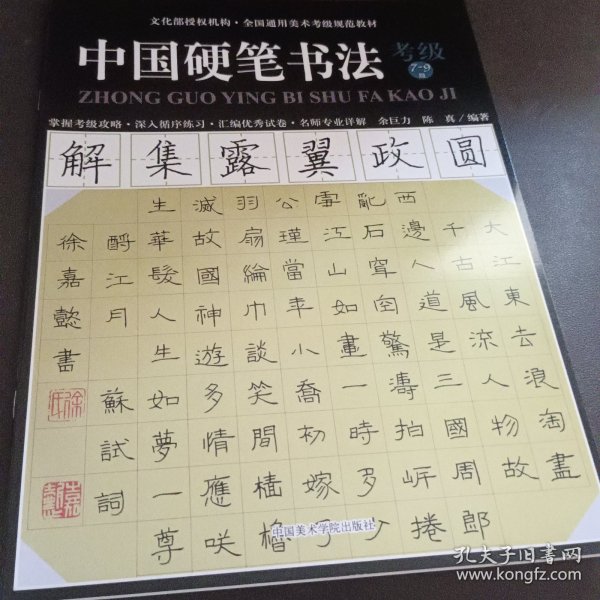 文化部授权机构·全国通用美术考级规范教材
中国硬笔书法 考级
7-9
级
ZHONG GUO YING BI SHU FA KAO JI
掌握考级攻略·深入循序练习·汇编优秀试卷·名师专业详解 余巨力 陈 真/编著
解集露翼政圆
大江東去浪淘盡
千古風流人物故
西邊人道是三國周郎
亂石穿空驚濤拍岍捲
雪江山如畫一時多少
公瑾當年小喬初嫁了
羽扇綸巾談笑間樯櫓
滅故國神遊多情應咲
生華髮人生如夢一尊
酹江月 蘇試詞
徐嘉懿書
中国美术学院出版社
孔夫子旧书网
www.kongfz.com